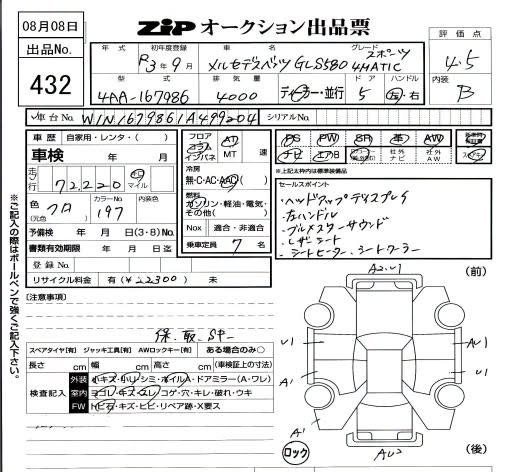 08月08日
ZIP オークション出品票
評価点
4.5
出品No.
432
年式
初年度登録
R3年9月
車名
メルセデスベンツ GLS580
グレード
スポーツ
4MATIC
内装
B
型式
4AA-167986
排気量
4000
ディーラー・並行
ドア
5
ハンドル
左・右
車台No.
W1N1679861A499204
シリアルNo.
車歴
自家用・レンタ・( )
車検
年 月
走行
72,220
km
マイル
色
クロ
(元色)
カラーNo.
197
内装色
予備検
年 月 日(3・8)No.
書類有効期限
年 月 日迄
登録No.
リサイクル料金
有(¥22300) 未
フロア
コラム
インパネ
AT
MT
速
冷房
無・C・AC・AAC
燃料
ガソリン・軽油・電気・
その他( )
Nox
適合・非適合
乗車定員
7名
PS
PW
SR
革
AW
ナビ
エアB
社外
ナビ
社外
AW
※上記太枠内は標準装備品
セールスポイント
・ヘッドアップディスプレイ
・左ハンドル
・ブルメスターサウンド
・レザーシート
・シートヒーター、シートクーラー
※ご記入の際はボールペンで強くご記入下さい。
【注意事項】
保、取、Sキー
スペアタイヤ[有] ジャッキ工具[有] AWロックキー[有] ある場合のみ〇
長さ cm 幅 cm 高さ cm (車検証上の寸法)
検査記入
外装
小キズ・小U・シミ・ホイルA・ドアミラー(A・ワレ)
室内
ヨゴレ・キズ・スレ・コゲ・穴・キレ・破れ・ウキ
FW
トビ石・キズ・ヒビ・リペア跡・X要ス
(前)
A2.U1
U1
AU1
A1
U1
A1
AU2
ロック
(後)